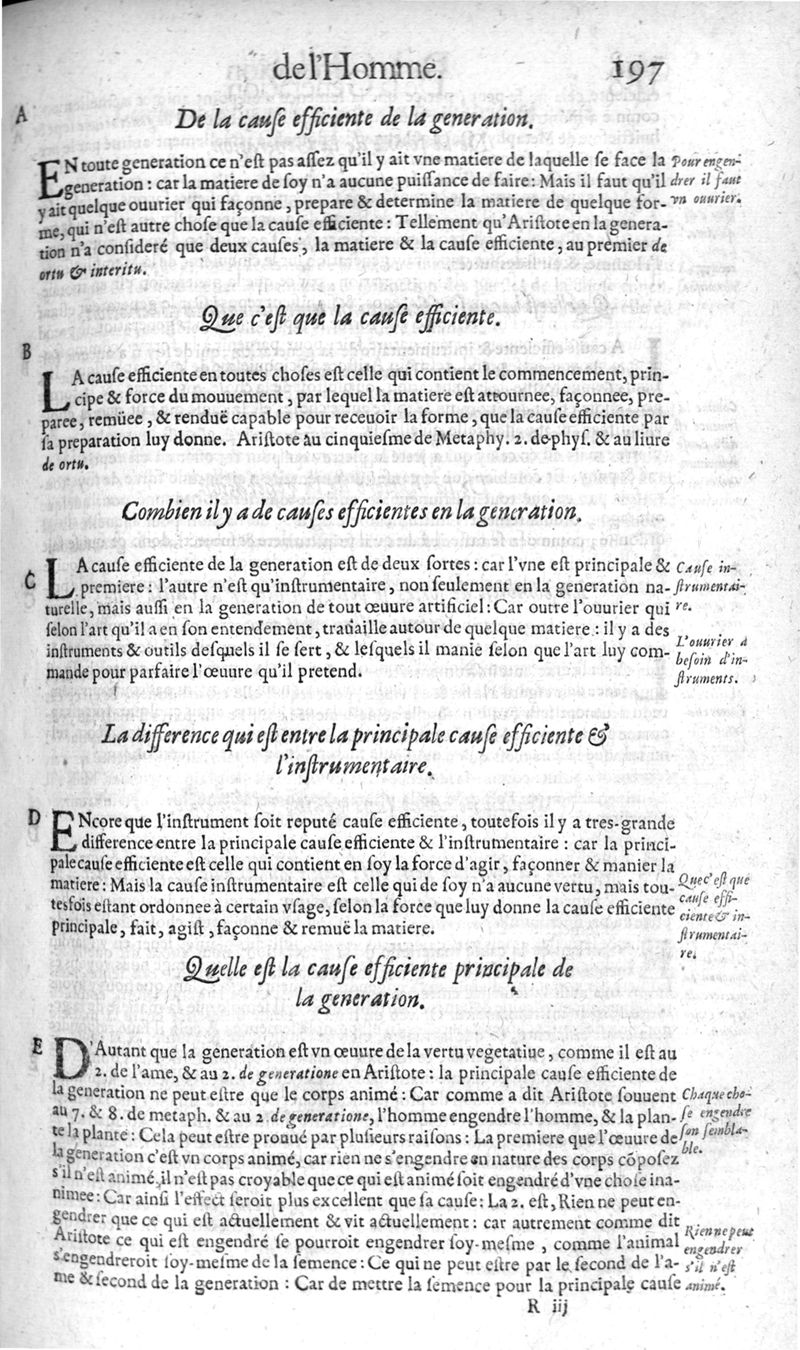 de l'Homme. 197
A
De la cauſe efficiente de la generation.
EN toute generation ce n'eſt pas aſſez qu'il y ait vne matiere de laquelle ſe face la
generation : car la matiere de ſoy n'a aucune puiſſance de faire : Mais il faut qu'il
y ait quelque ouurier qui façonne, prepare & determine la matiere de quelque for-
me, qui n'eſt autre choſe que la cauſe efficiente : Tellement qu'Ariſtote en la genera-
tion n'a conſideré que deux cauſes, la matiere & la cauſe efficiente, au premier de
ortu & interitu.
Pour engen-
drer il faut
vn ouurier.
Que c'eſt que la cauſe efficiente.
B
LA cauſe efficiente en toutes choſes eſt celle qui contient le commencement, prin-
cipe & force du mouuement, par lequel la matiere eſt attournee, façonnee, pre-
paree, remüee, & renduë capable pour receuoir la forme, que la cauſe efficiente par
ſa preparation luy donne. Ariſtote au cinquieſme de Metaphy. 2. de phyſ. & au liure
de ortu.
Combien il y a de cauſes efficientes en la generation.
C
LA cauſe efficiente de la generation eſt de deux ſortes : car l'vne eſt principale &
premiere : l'autre n'eſt qu'inſtrumentaire, non ſeulement en la generation na-
turelle, mais auſſi en la generation de tout œuure artificiel : Car outre l'ouurier qui
ſelon l'art qu'il a en ſon entendement, trauaille autour de quelque matiere : il y a des
inſtruments & outils deſquels il ſe ſert, & leſquels il manie ſelon que l'art luy com-
mande pour parfaire l'œuure qu'il pretend.
Cauſe in-
ſtrumentai-
re.
L'ouurier a
beſoin d'in-
ſtruments.
La difference qui eſt entre la principale cauſe efficiente &
l'inſtrumentaire.
D
ENcore que l'inſtrument ſoit reputé cauſe efficiente, toutefois il y a tres-grande
difference entre la principale cauſe efficiente & l'inſtrumentaire : car la princi-
pale cauſe efficiente eſt celle qui contient en ſoy la force d'agir, façonner & manier la
matiere : Mais la cauſe inſtrumentaire eſt celle qui de ſoy n'a aucune vertu, mais tou-
tesfois eſtant ordonnee à certain vſage, ſelon la force que luy donne la cauſe efficiente
principale, fait, agiſt, façonne & remuë la matiere.
Que c'eſt que
cauſe effi-
ciente & in-
ſtrumentai-
re.
Quelle eſt la cauſe efficiente principale de
la generation.
E
D'Autant que la generation eſt vn œuure de la vertu vegetatiue, comme il eſt au
2. de l'ame, & au 2. de generatione en Ariſtote : la principale cauſe efficiente de
la generation ne peut eſtre que le corps animé : Car comme a dit Ariſtote ſouuent
au 7. & 8. de metaph. & au 2 de generatione, l'homme engendre l'homme, & la plan-
te la plante : Cela peut eſtre prouué par pluſieurs raiſons : La premiere que l'œuure de
la generation c'eſt vn corps animé, car rien ne s'engendre en nature des corps cõpoſez
s'il n'eſt animé, il n'eſt pas croyable que ce qui eſt animé ſoit engendré d'vne choſe ina-
nimee : Car ainſi l'effect ſeroit plus excellent que ſa cauſe : La 2. eſt, Rien ne peut en-
gendrer que ce qui eſt actuellement & vit actuellement : car autrement comme dit
Ariſtote ce qui eſt engendré ſe pourroit engendrer ſoy-meſme, comme l'animal
s'engendreroit ſoy-meſme de la ſemence : Ce qui ne peut eſtre par le ſecond de l'a-
me & ſecond de la generation : Car de mettre la ſemence pour la principale cauſe
Chaque cho-
ſe engendre
ſon ſembla-
ble.
Rien ne peut
engendrer
s'il n'eſt
animé.
R iij